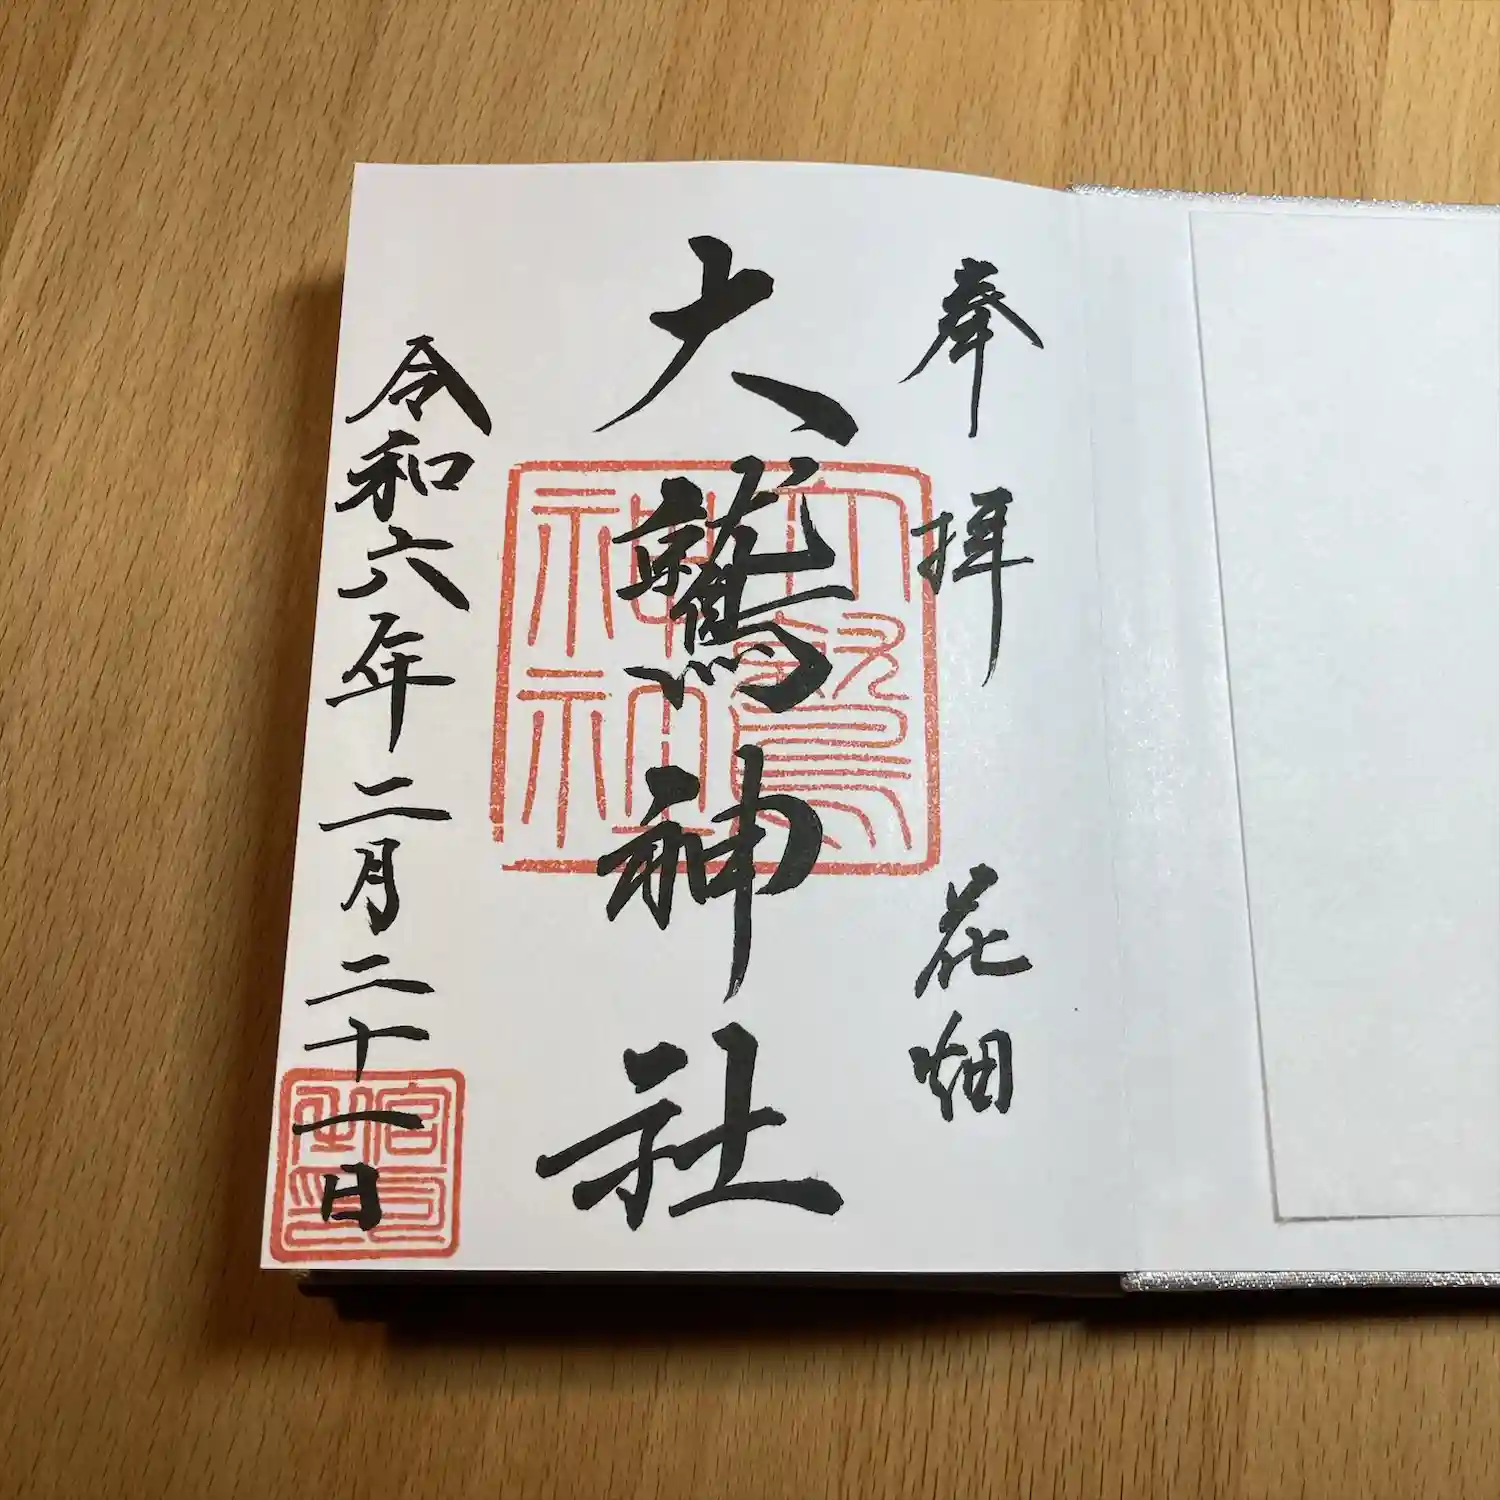 奉拝 花畑
大鷲神社
大鷲神社
令和六年二月二十一日
宮司之印